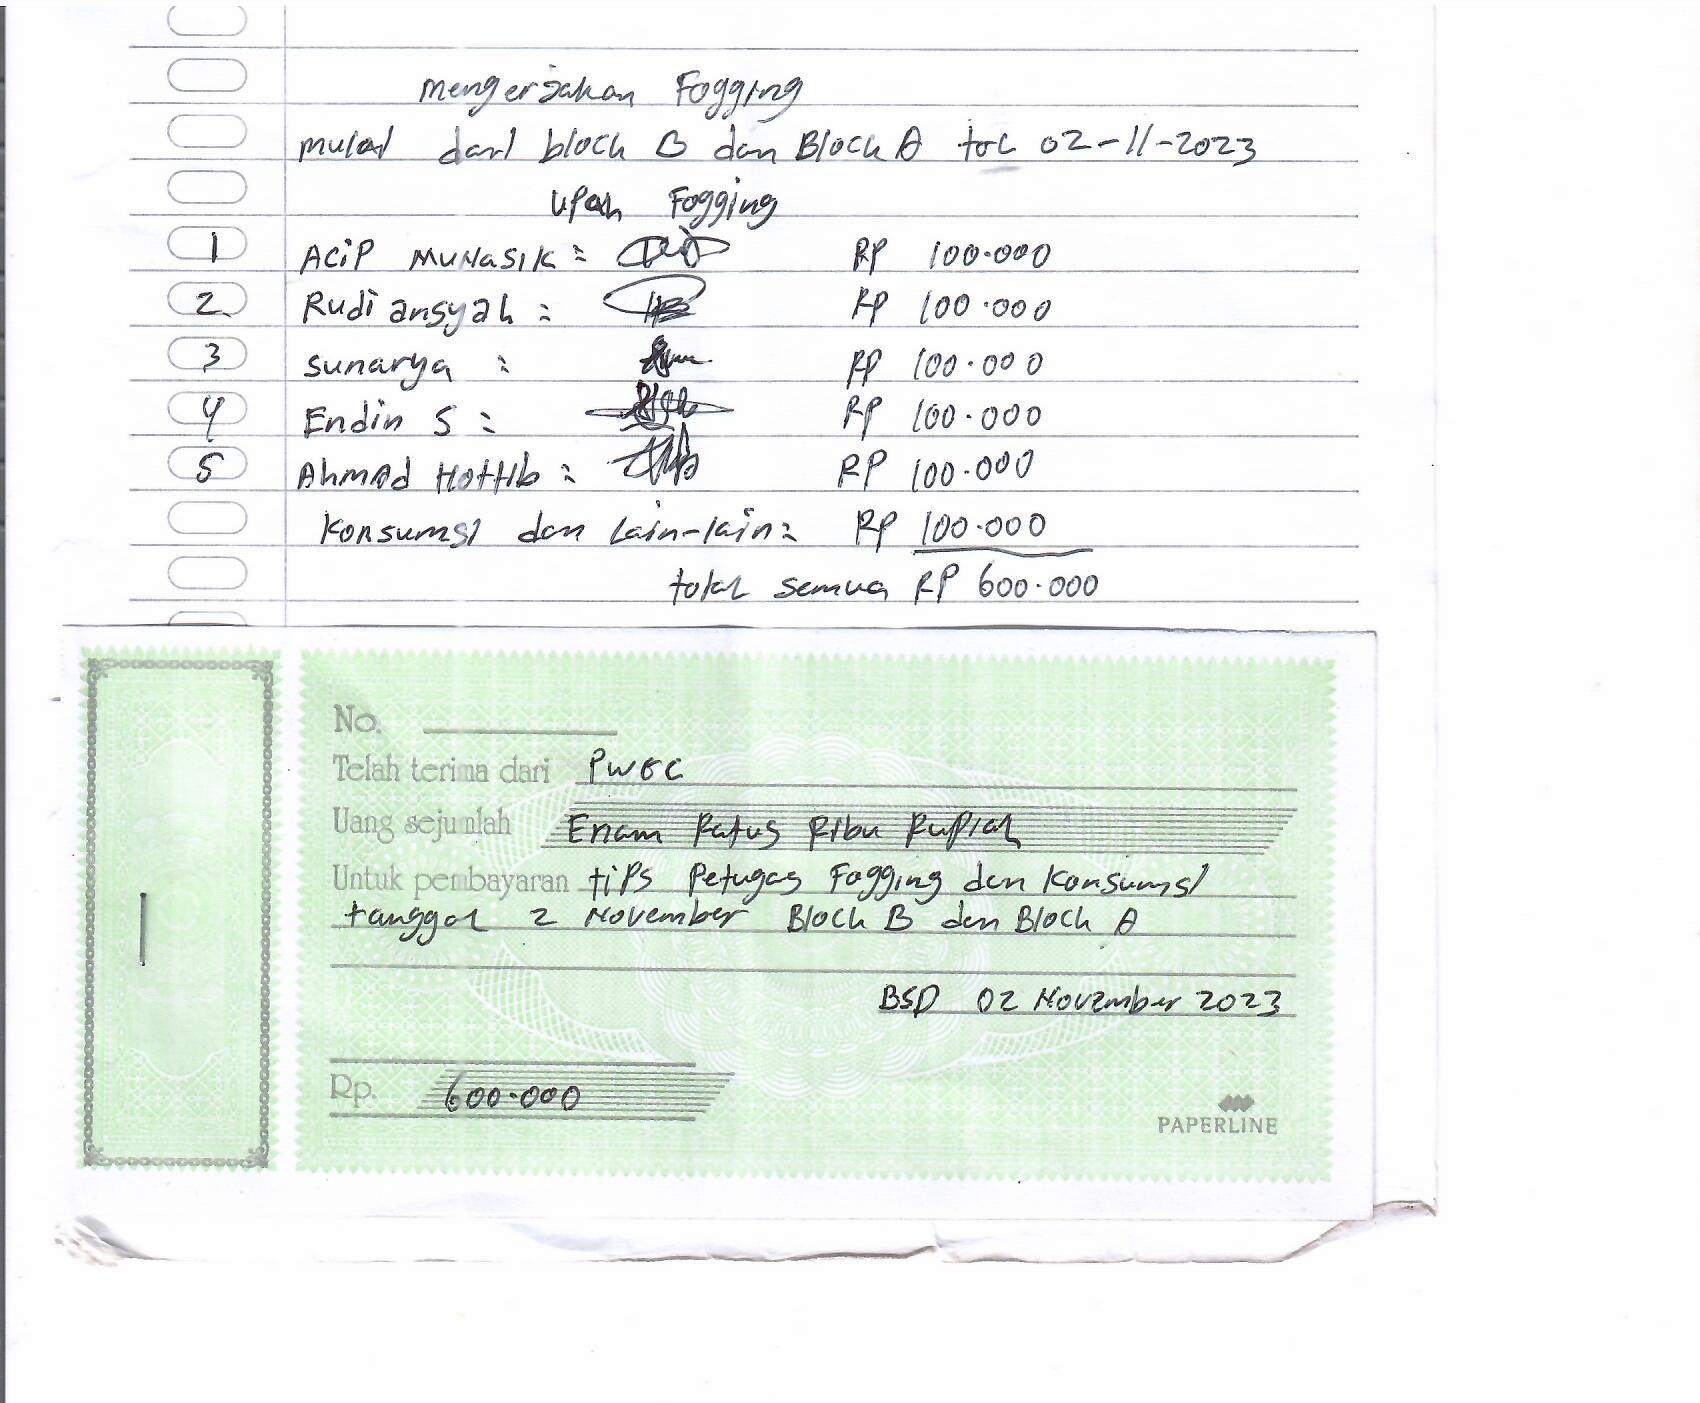 mengerjakan Fogging
mulai dari block B dan Block A tgl 02-11-2023
upah Fogging
1 ACiP MUNASIK = RP 100.000
2 Rudi ansyah : RP 100.000
3 sunarya : RP 100.000
4 Endin S : RP 100.000
5 Ahmad HOTTIb = RP 100.000
Konsumsi dan Lain-lain = RP 100.000
total semua RP 600.000
No.
Telah terima dari PWGC
Uang sejumlah Enam Ratus Ribu Rupiah
Untuk pembayaran tips Petugas Fogging dan Konsumsi
tanggal 2 November Block B dan Block A
BSD 02 November 2023
Rp. 600.000
PAPERLINE